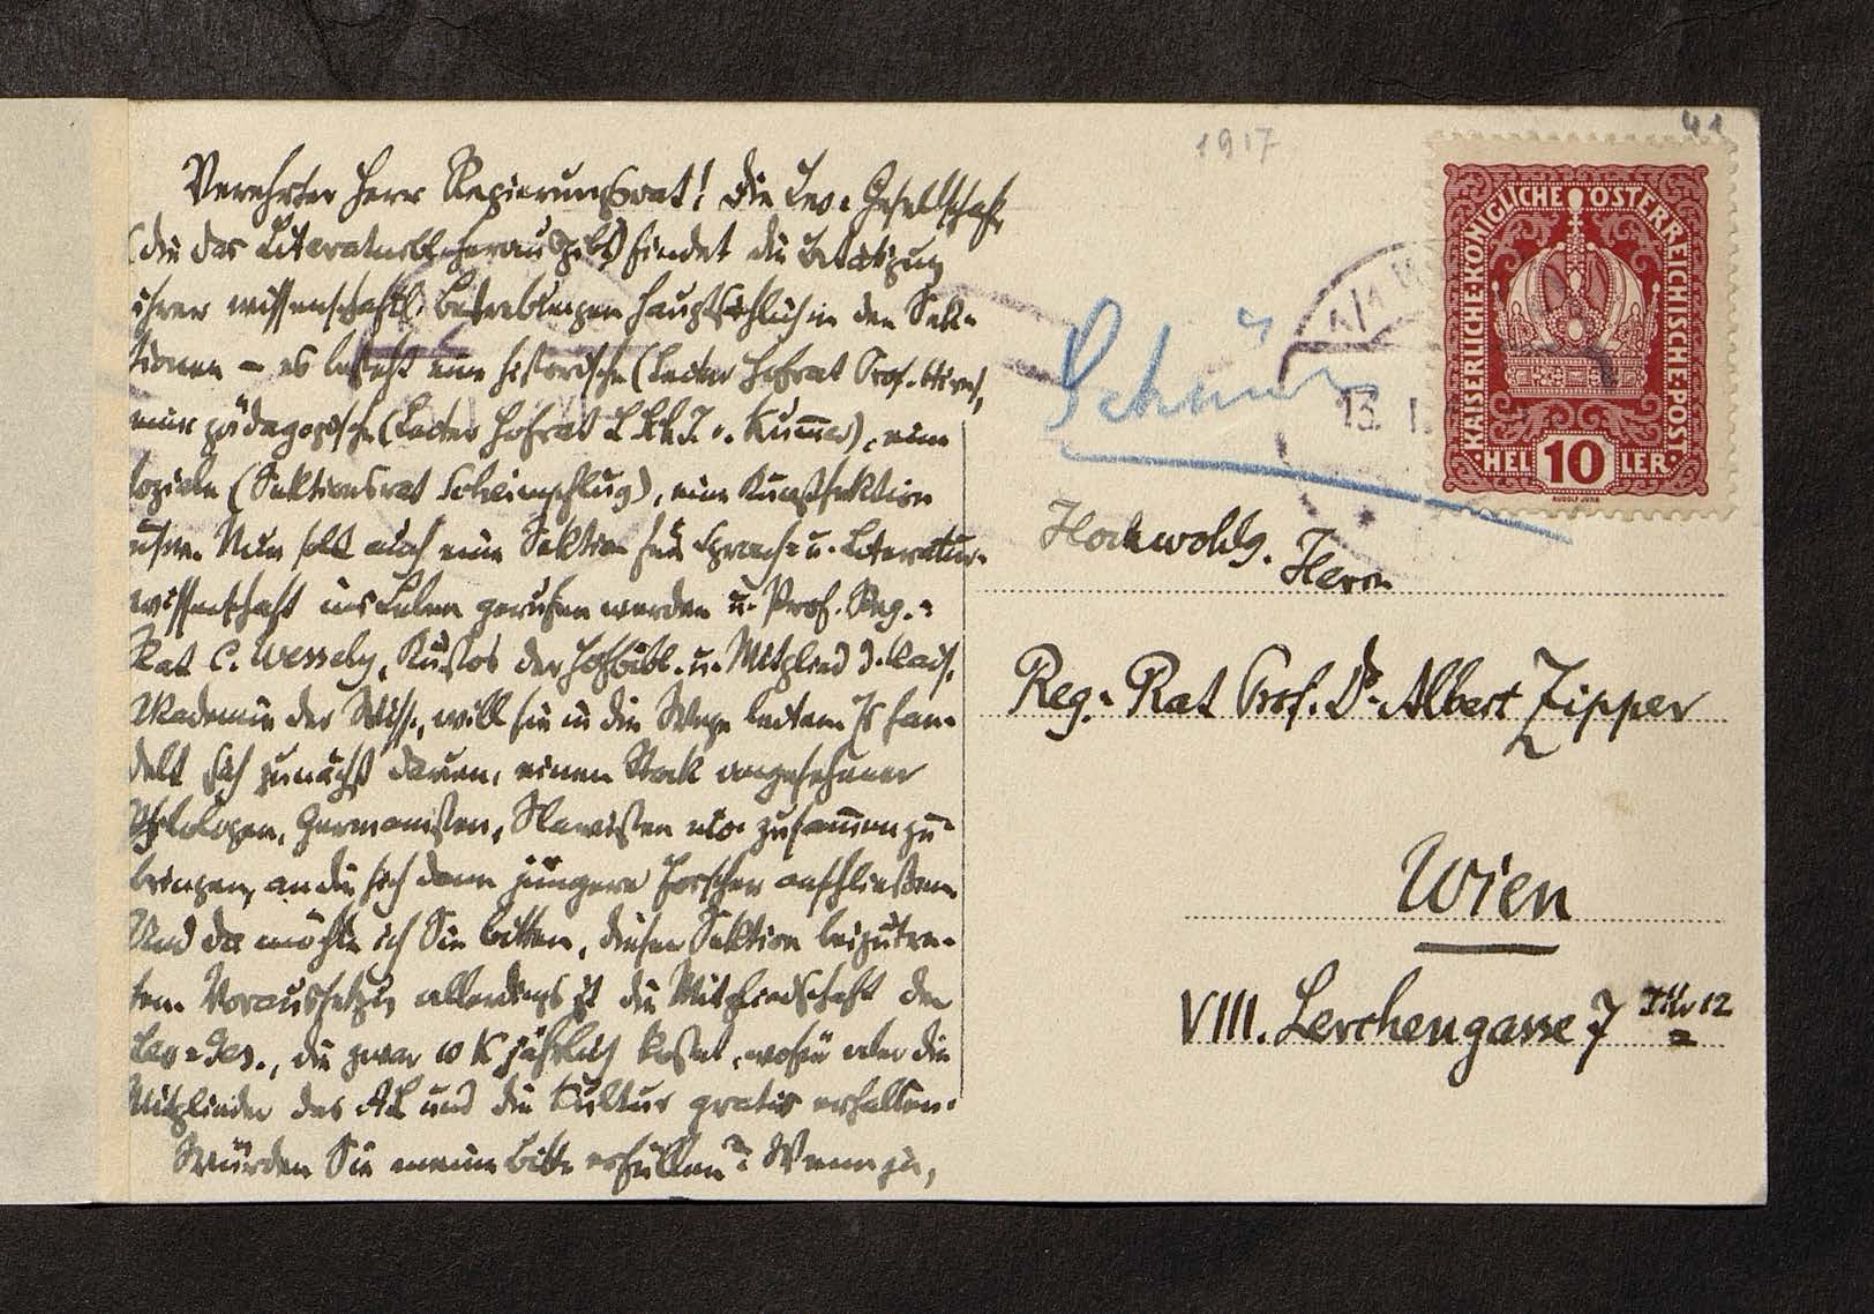 Verehrter Herr Regierungsrat! Die Leo-Gesellschaft
(die das Literaturbl. herausgibt) findet die Betätigung
ihrer wissenschaftl. Bestrebungen hauptsächlich in den Sek-
tionen – es besteht eine historische (Leiter Hofrat Prof. Hirn),
eine pädagogische (Leiter Hofrat v. Kum̅er), eine
soziale (Sektionsrat Scheimpflug), eine Kunstsektion
usw. Nun soll auch eine Sektion für Sprach- u. Literatur-
wissenschaft ins Leben gerufen werden u. Prof. Reg.-
Rat C. Wessely, Kustos der Hofbibl. u. Mitglied d. kais.
Akademie der Wiss., will sie in die Wege leiten. Es han-
delt sich zunächst darum, einen Stock angesehener
Philologen, Germanisten, Slawisten etc. zusam̅enzu-
bringen, an die sich dann jüngere Forscher anschließen.
Und da möchte ich Sie bitten, dieser Sektion beizutre-
ten. Voraussetzg allerdings ist die Mitgliedschaft der
Leo-Ges., die zwar 10 K jährlich kostet, wofür aber die
Mitglieder das AL und die Kultur gratis erhalten.
Würden Sie meine Bitte erfüllen? Wenn ja,
1917
41
KAISERLICHE KÖNIGLICHE ÖSTERREICHISCHE POST
HELLER 10
13. I.
Hochwohlg. Herrn
Reg.-Rat Prof. Dr. Albert Zipper
Wien
VIII. Lerchengasse 7 Tür 12